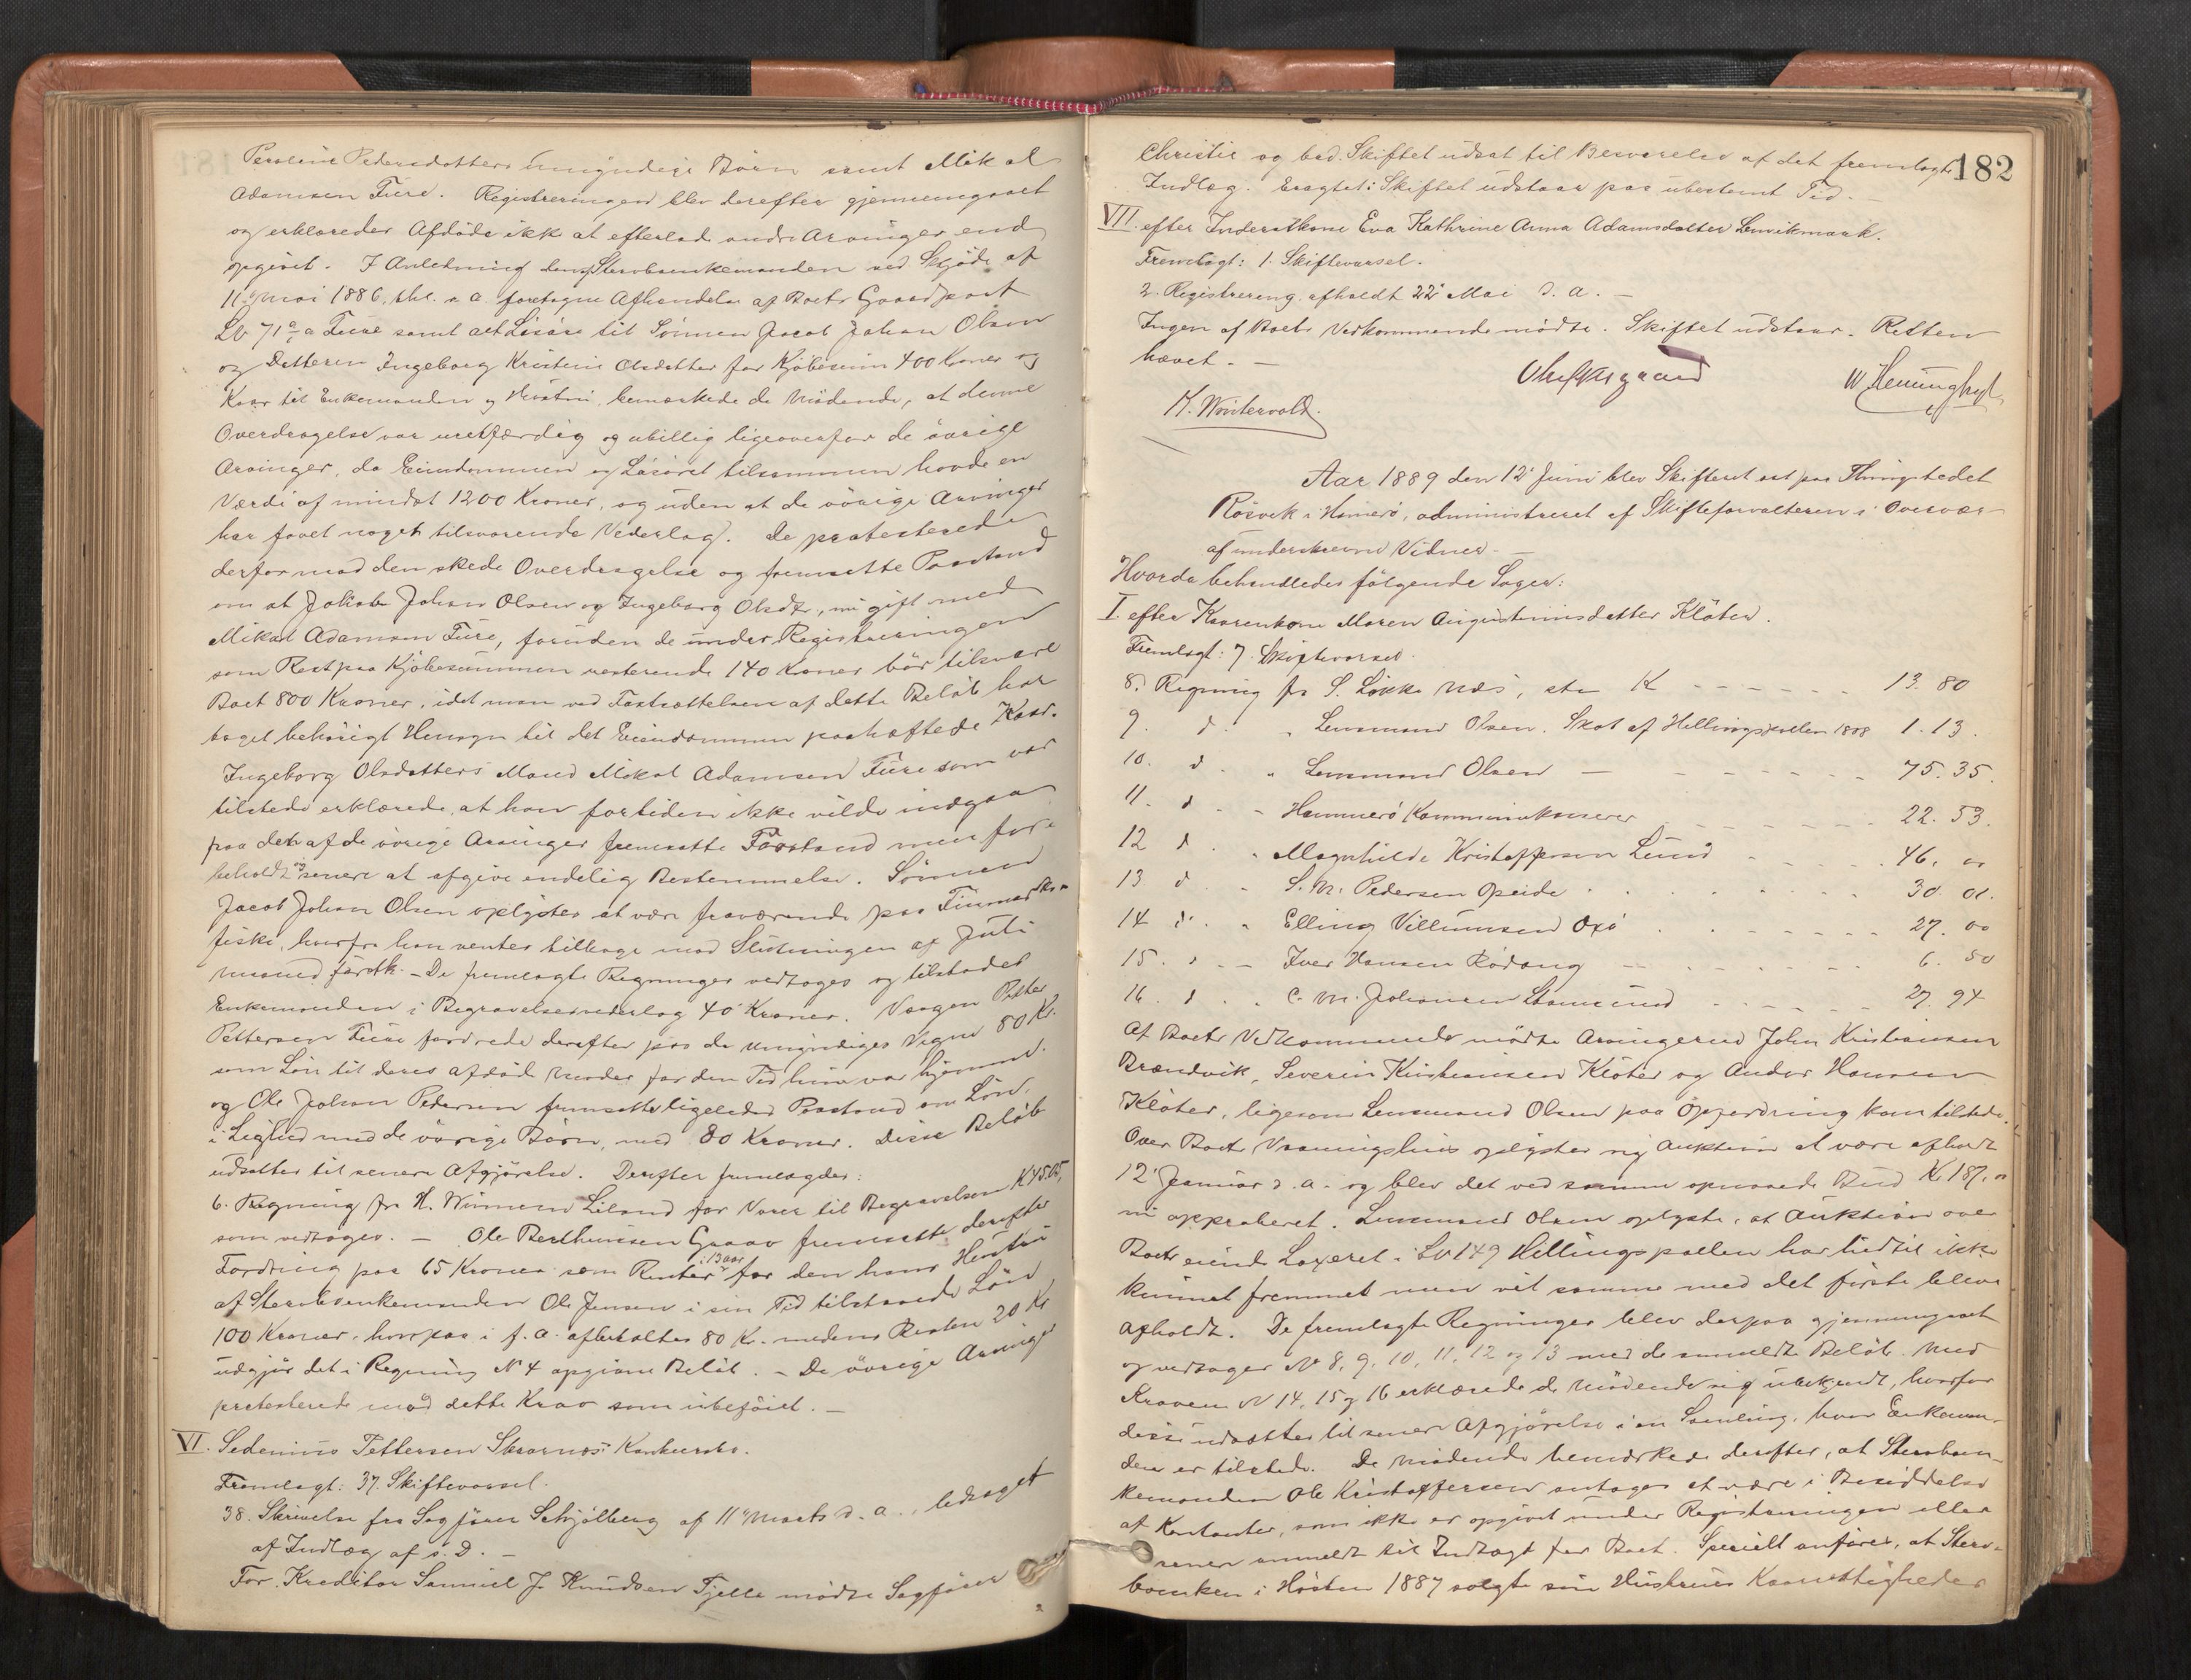 Peroline Pedersdatters umyndige Børn samt Mikal
Adamsen Fure. Registreringen blev derefter gjennemgaaet
og erklæredes Afdøde ikke at efterlade andre Arvinger end
opgivet. I Anledning den af Stervboenkemanden ved Skjøde af
11 Mai 1886, thl. s. a. foretagne Afhændelse af Boets Gaardpart
Lb 71 a Fure samt alt Løsøre til Sønnen Jacob Johan Olsen
og Datteren Ingeborg Kristine Olsdatter for Kjøbesum 400 Kroner og
Kaar til Enkemanden og Hustru, bemærkede de Mødende, at denne
Overdragelse var uretfærdig og ubillig ligeoverfor de øvrige
Arvinger, da Eiendommen og Løsøret tilsammen havde en
Værdi af mindst 1200 Kroner, og uden at de øvrige Arvinger
har faaet noget tilsvarende Vederlag. De protesterede
derfor mod den skede Overdragelse og fremsatte Paastand
om at Jakob Johan Olsen og Ingeborg Olsdtr, nu gift med
Mikal Adamsen Fure, foruden de under Registreringen
som Rest paa Kjøbesummen resterende 140 Kroner bør tilsvare
Boet 800 Kroner, idet man ved Fastsættelsen af dette Beløb har
taget behørigt Hensyn til det Eiendommen paahæftede Kaar.
Ingeborg Olsdatters Mand Mikal Adamsen Fure som var
tilstede erklærede, at han for tiden ikke vilde indgaa
paa den af de øvrige Arvinger fremsatte Paastand men for-
beholdt sig senere at afgive endelig Bestemmelse. Sønnen
Jacob Johan Olsen oplystes at være fraværende paa Finmarks-
fiske, hvorfra han ventes tilbage mod Slutningen af Juli
Maaned førstk. – De fremlagte Regninger vedtoges og tilstodes
Enkemanden i Begravelsesvederlag 40 Kroner. Værgen Petter
Pettersen Fure fordrede derefter paa de Umyndiges Vegne 80 Kr.
som Løn til deres afdøde Moder for den Tid hun var hjemme.
og Ole Johan Pedersen fremsatte ligeledes Paastand om Løn
i Lighed med de øvrige Børn, med 80 Kroner. Disse Beløb
udsattes til senere Afgjørelse. Derefter fremlagdes:
6. Regning fra H. Leland for Varer til Begravelsen K 45.05,
som vedtoges. – Ole Berthinsen Graav fremsatte derefter
Fordring paa 65 Kroner som Renter i 13 aar for den hans Hustru
af Stervboenkemanden Ole Jensen i sin Tid tilstaaede Løn
100 Kroner, hvorpaa i f. a. afbetaltes 80 Kr. medens Resten 20 Kr
udgjør det i Regning N 4 opgivne Beløb. – De øvrige Arvinger
protesterede mod dette Krav som ubeføiet. –
VI. Sedenius Pettersen Skarnæs' Konkursbo.
Fremlagt: 37. Skiftevarsel.
38. Skrivelse fra Sagfører Schjølberg af 11 Marts d. a., ledsaget
af Indlæg af s. D. –
For Kreditor Samuel J. Knudsen Fjelle mødte Sagfører
182
Christie og bad Skiftet udsat til Besvarelse af det fremlagte
Indlæg. Eragtet: Skiftet udstaar paa ubestemt Tid. –
VII. efter Inderstkone Eva Kathrine Anna Adamsdatter Lenvikmark.
Fremlagt: 1. Skiftevarsel.
2. Registrering afholdt 22 Mai d. a. –
Ingen af Boets Vedkommende mødte. Skiftet udstaar. Retten
hævet. –
M. Wintervold.
Aar 1889 den 12 Juni blev Skifteret sat paa Thingstedet
Røsvik i Hamerø, administreret af Skifteforvalteren i Overvær
af underskrevne Vidner. –
Hvorda behandledes følgende Sager:
I. efter Kaarenkone Maren Augustinusdatter Kløter.
Fremlagt: 7. Skiftevarsel.
8. Regning fra S. Løkke Næs, stor K 13. 80
9. d. " Lensmand Olsen. Skat af Hellingspollen 1888 1. 13.
10. d. " Lensmand Olsen 75. 35.
11. d. " Hammerø Kommunekasserer 22. 53.
12 d. " Magnhilde Kristoffersen Lund 46. 00
13 d. " S. M. Pedersen Opeide 30. 01.
14 d. " Elling Villumsen Oxø 27. 00
15. d. – Iver Hansen Rødang 6. 50
16. d. " C. M. Johansen Stamsund 27. 94
Af Boets Vedkommende mødte Arvingerne John Kristiansen
Brændvik, Severin Kristiansen Kløter og Andor Hansen
Kløter, ligesom Lensmand Olsen paa Opfordring kom tilstede.
Over Boets Vaaningshus oplystes ny Auktion at være afholdt
12 Januar d. a. og blev det ved samme opnaaede Bud K 187,00
nu approberet. Lensmand Olsen oplyste, at Auktion over
Boets eiende Laxeret i Lb 149 Hellingspollen har hidtil ikke
kunnet fremmet men vil samme med det første blive
afholdt. De fremlagte Regninger blev derpaa gjennemgaaet
og vedtoges N 8, 9, 10, 11, 12 og 13 med de anmeldte Beløb. Med
Kraven N 14, 15 og 16 erklærede de Mødende sig ubekjendt, hvorfor
disse udsættes til senere Afgjørelse i en Samling, hvor Enkeman-
den er tilstede. De Mødende bemærkede derefter, at Stervboen-
kemanden Ole Kristoffersen antages at være i Besiddelse
af Kontanter, som ikke er opgivet under Registreringen eller
senere anmeldt til Indtægt for Boet. Specielt anføres, at Sterv-
boenken i Høsten 1887 solgte sin Hustrues Kaarrettigheder